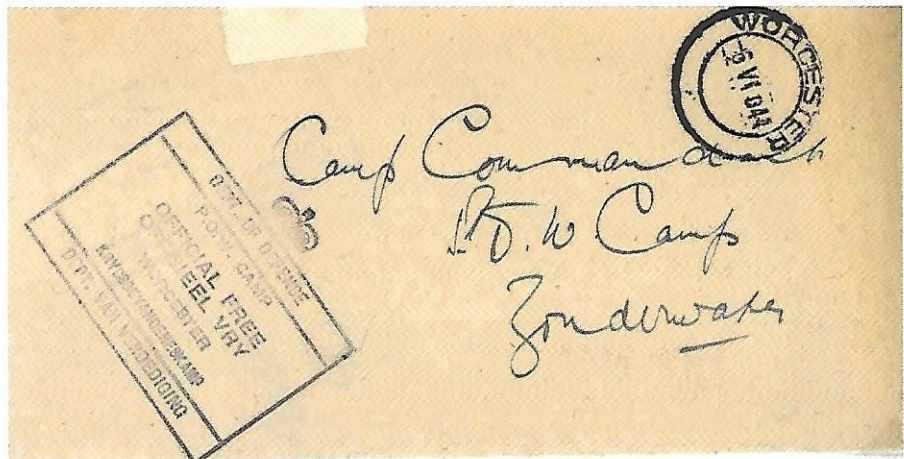 WORCESTER
VI 944
Camp Commandant
P.O.W Camp
Zonderwater
DEPT. OF DEFENCE
P.O.W. CAMP
OFFICIAL FREE
OFFISIEEL VRY
WORCESTER
KRYGSGEVANGENESKAMP
DEPT. VAN VERDEDIGING